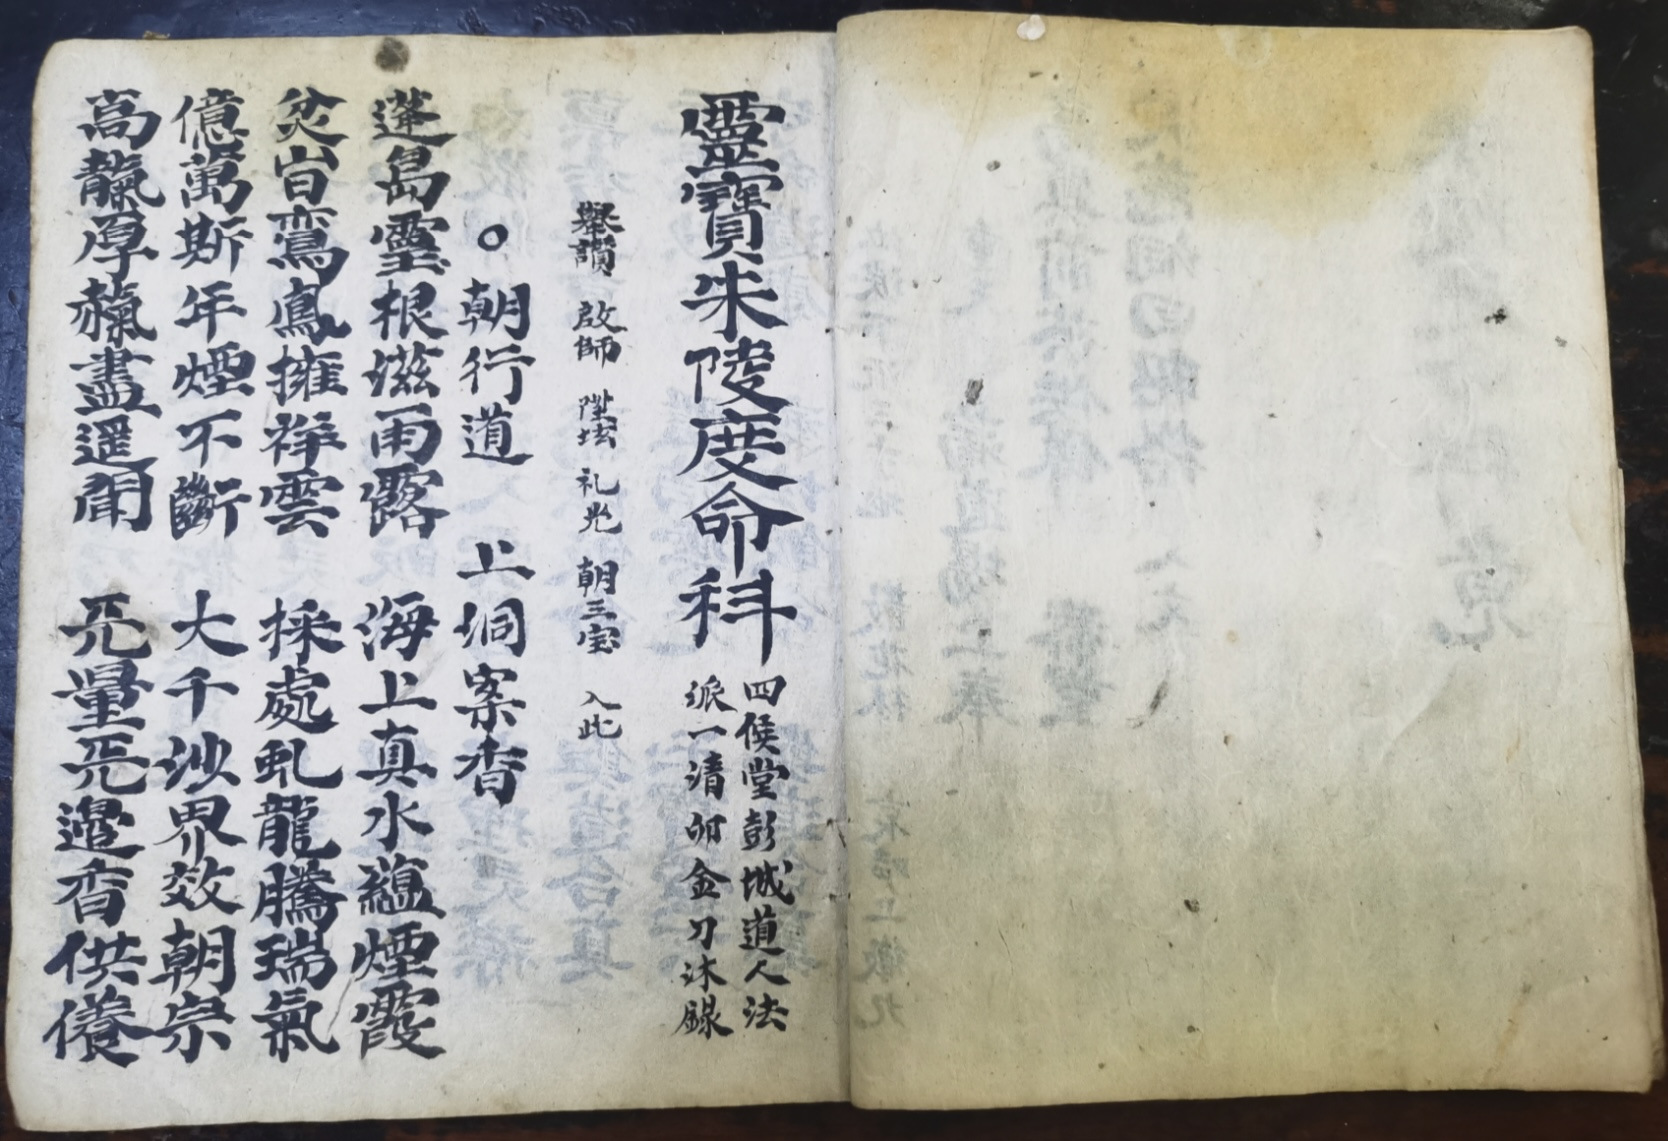 靈寶朱陵度命科
四侯堂彭城道人法
派一清卯金刀沐錄
舉讚 啟師 陞坛 礼光 朝三宝 入此
○朝行道 上洞案香
蓬島靈根滋雨露 海上真水蘊煙霞
焚時鸞鳳擁祥雲 採處虬龍騰瑞氣
億萬斯年煙不斷 大千沙界效朝宗
高厚盡遥聞 旡量旡邊香供養